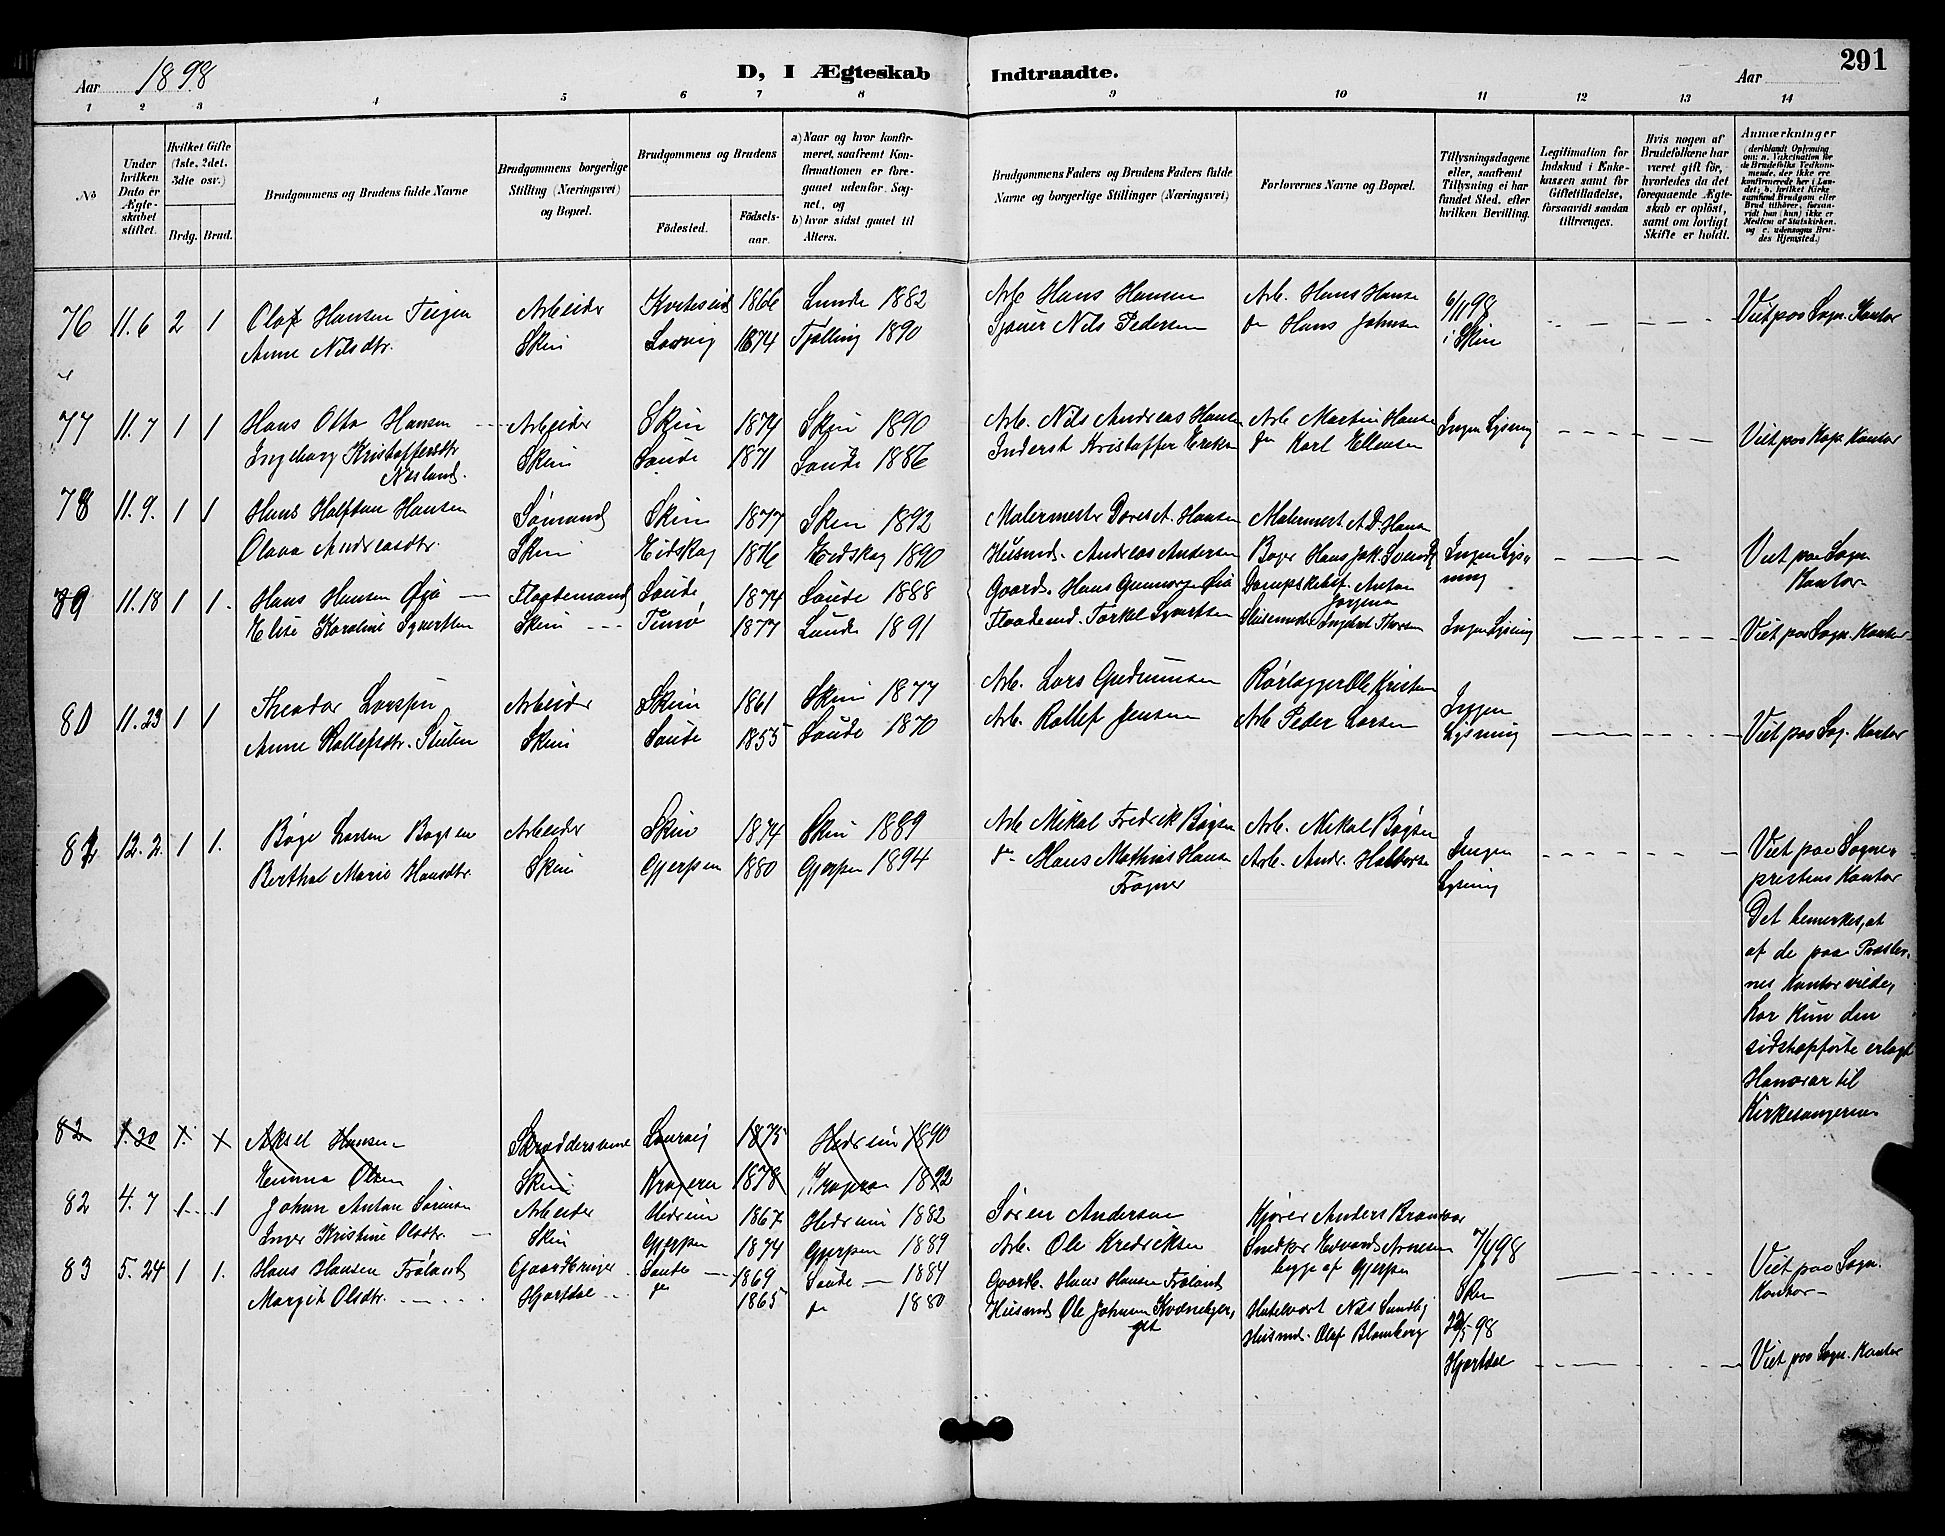 Aar 1898
D, I Ægteskab Indtraadte.
Aar
291
1 2 3 4 5 6 7 8 9 10 11 12 13 14
No
Under hvilken Dato er Ægteskabet stiftet.
Hvilket Gifte (1ste, 2det, 3die osv.)
Brdg. Brud.
Brudgommens og Brudens fulde Navne
Brudgommens borgerlige Stilling (Næringsvei) og Bopæl.
Brudgommens og Brudens
Fødested. Fødselsaar.
a) Naar og hvor konfirmeret, saafremt Konfirmationen er foregaaet udenfor Sognet, og
b) hvor sidst gaaet til Alters.
Brudgommens Faders og Brudens Faders fulde Navne og borgerlige Stillinger (Næringsvei)
Forlovernes Navne og Bopæl.
Tillysningsdagene eller, saafremt Tillysning ei har fundet Sted, efter hvilken Bevilling.
Legitimation for Indskud i Enkekassen samt for Giftetilladelse, forsaavidt saadan tiltrænges.
Hvis nogen af Brudefolkene har været gift før, hvorledes da det foregaaende Ægteskab er opløst, samt om lovligt Skifte er holdt.
Anmærkninger
(deriblandt Oplysning om: a. Vakcination for de Brudefolks Vedkommende, der ikke ere konfirmerede her i Landet; b. hvilket Kirkesamfund Brudgom eller Brud tilhører, forsaavidt han (hun) ikke er Medlem af Statskirken, og c. udensogns Brudes Hjemsted.)
76 11.6 2 1 Olaf Hansen Teigen Arbeider Kviteseid 1866 Lunde 1882 Arb. Hans Hansen Arb. Hans Hanse 6/11 98 Viet paa Sogn. Kontor
Anne Nilsdtr. Skien Larvig 1874 Tjølling 1890 Sjauer Nils Pedersen do Hans Johnsen i Skien
77 11.7 1 1 Hans Otto Hansen Arbeider Skien 1874 Skien 1890 Arb. Nils Andreas Hansen Arb. Martin Hanse Ingen Lysning Viet paa Kap. Kontor
Ingeborg Kristoffersdtr Næsland. Skien Saude 1871 Saude 1886 Inderst Kristoffer Eriksen do Karl Ellensen
78 11.9. 1 1 Hans Halfdan Hansen Sømand Skien 1877 Skien 1892 Malermester A. Hansen Malermest. A. D. Hansen
Olava Andreasdtr. Skien Eidskog 1876 Eidskog 1890 Husmd. Andreas Andersen Hans Jak. Ingen Lysning Viet paa Sogn. Kontor
79 11.18 1 1. Hans Hansen Øya Fløtemand Saude 1874 Saude 1888 Gaardb. Hans Gunnarsen Øia Dampskibsf. Anton Jørgensen
Elise Karoline Syvertsen Skien 1877 Lunde 1891 Torkel Syvertsen Slusemd. Ingebret Thorsen Ingen Lysning Viet paa Sogn. Kontor
80 11.23 1 1 Theodor Larssen Arbeider Skien 1861 Skien 1877 Arb. Lars Gudmunsen Rørlægger Ole Kristen Ingen Lysning Viet paa Sog. Kontor
Anne Rollefsdtr. Stulen Skien Saude 1855 Saude 1870 Arb. Rollef Jensen Arb. Peder Larsen
81 12.2. 1 1. Bøge Larsen Bøgsen Arbeider Skien 1874 Skien 1889 Arb. Mikal Fredrik Bøgsen Arb. Mikal Bøgsen Ingen Lysning Viet paa Sognepræstens Kontor
Berthe Marie Hansdtr. Skien Gjerpen 1880 Gjerpen 1894 do Hans Mathias Hansen Frogner Arb. Andr. Halvorsen
Det bemerkes, at
af de paa Præsternes Kontor viede,
har kun den
sidstopførte erlagt
Honorar til
Kirkesangeren.
82 1.20 1. 1 Aksel Hansen Skræddersvend Laurvig 1875 Hedrum 1890
Emma Olsen Skien Kragerø 1878 Kragerø 1892
82 4.7 1 1 Johan Anton Sørensen Arbeider Hedrum 1867 Hedrum 1882 Søren Andersen Kjører Anders
Inger Kristine Olsdtr. Skien Gjerpen 1874 Gjerpen 1889 Arb. Ole Fredriksen Edvard Arnesen begge af Gjerpen 98 Skien Viet paa Sogn. Kontor
83 5.24 1 1. Hans Hansen Frøland Gaardbruger Saude 1869 Saude 1884 Gaardb. Hans Hansen Frøland Hotelvært Nils Sundbø 98 Hjartdal Viet paa Sogn. Kontor
Margit Olsdtr. Hjartdal do 1865 do 1880 Husmd. Ole Johnsen Husmd. Olaf Blomberg